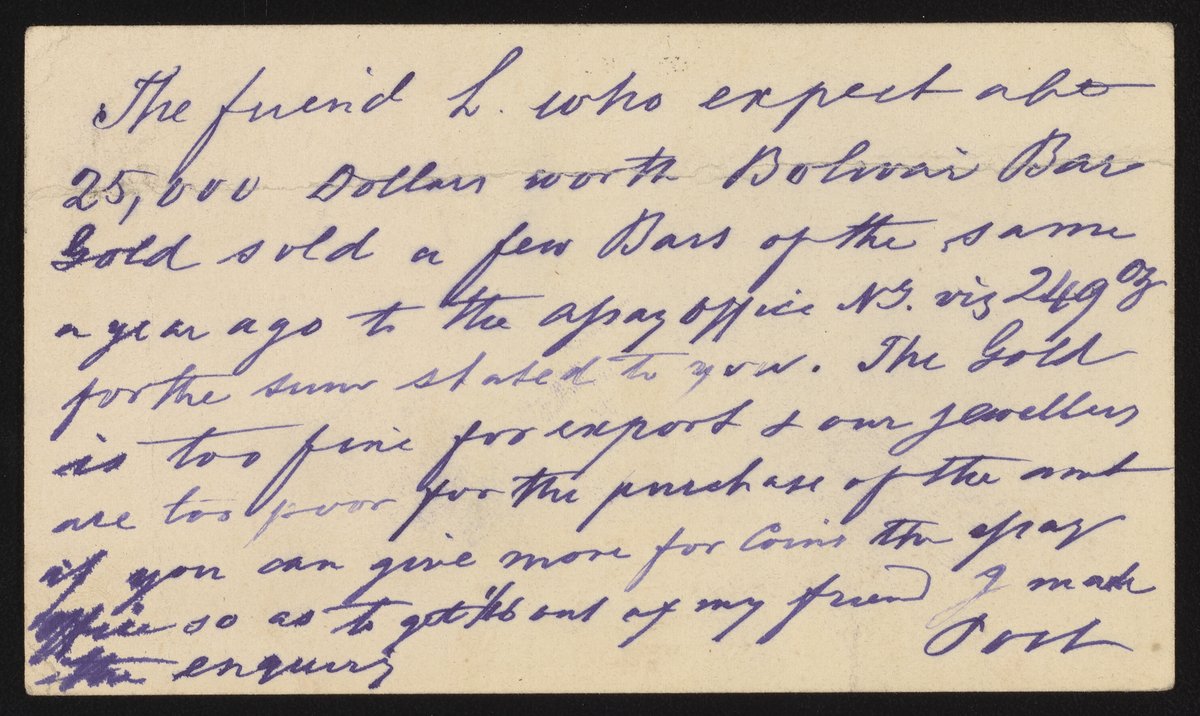 The friend L. who expect abt
25,000 Dollars worth Bolivar Bar
Gold sold a few Bars of the same
a year ago to the assay office N.Y. viz 249 oz
for the sum stated to you. The Gold
is too fine for export & our jewellers
are too poor for the purchase of the amt
if you can give more for Coins the assay
office so as to get out of my friend I made
the enquiry